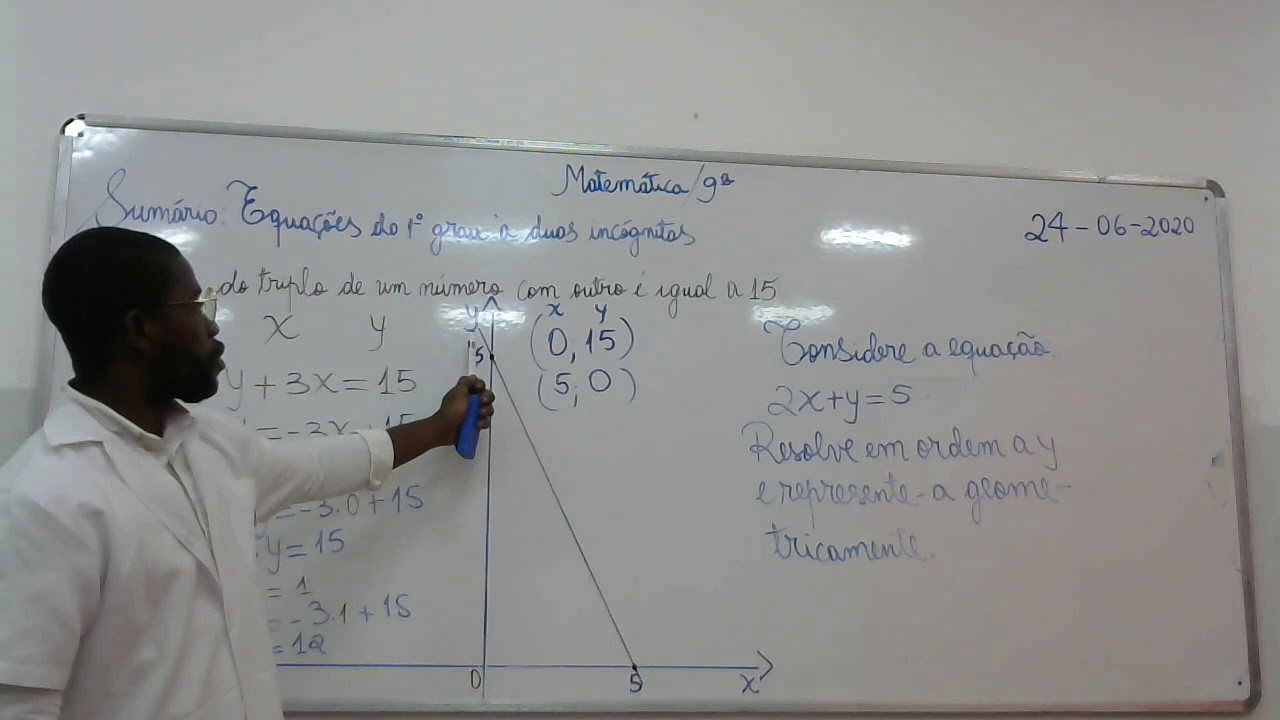 Matemática/9ª
Sumário: Equações do 1° grau à duas incógnitas
24-06-2020
do triplo de um número com outro é igual a 15
x y
y + 3x = 15
= -3x + 15
= -3.0 + 15
y = 15
= 1
= -3.1 + 15
= 12
y
15
0
5
x
x y
(0, 15)
(5; 0)
Considere a equação
2x+y=5
Resolve em ordem a y
e represente-a geome-
tricamente.